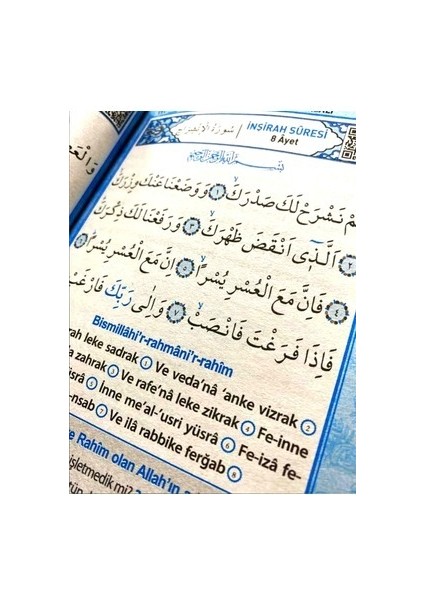 İNŞİRAH SÛRESİ
8 Âyet
سُورَةُ الْاِنْشِرَاحِ
بِسْمِ اللّٰهِ الرَّحْمٰنِ الرَّحِيمِ
نَشْرَحْ لَكَ صَدْرَكَ ۙ ١ وَوَضَعْنَا عَنْكَ وِزْرَكَ
٢ اَلَّذ۪ٓي اَنْقَضَ ظَهْرَكَ ۙ ٣ وَرَفَعْنَا لَكَ ذِكْرَكَ
٤ فَاِنَّ مَعَ الْعُسْرِ يُسْرًا ۙ ٥ اِنَّ مَعَ الْعُسْرِ يُسْرًا ٦
فَاِذَا فَرَغْتَ فَانْصَبْ ۙ ٧ وَاِلٰى رَبِّكَ فَارْغَبْ
Bismillâhi'r-rahmâni'r-rahîm
rah leke sadrak 1 Ve veda'nâ 'anke vizrak 2
a zahrak 3 Ve rafe'nâ leke zikrak 4 Fe-inne
üsrâ 5 İnne me'al-'usri yüsrâ 6 Fe-izâ fe-
-nsab 7 Ve ilâ rabbike ferğab 8
e Rahîm olan Allah'ın
işletmedik mi?